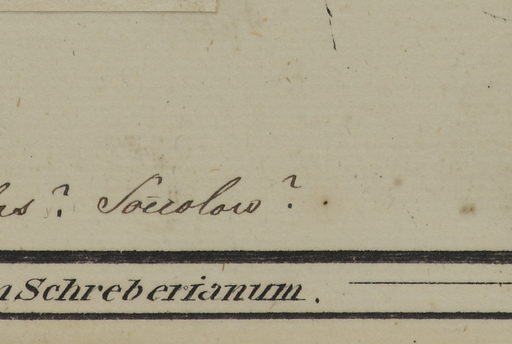 ? Soccolow ?
n Schreberianum.